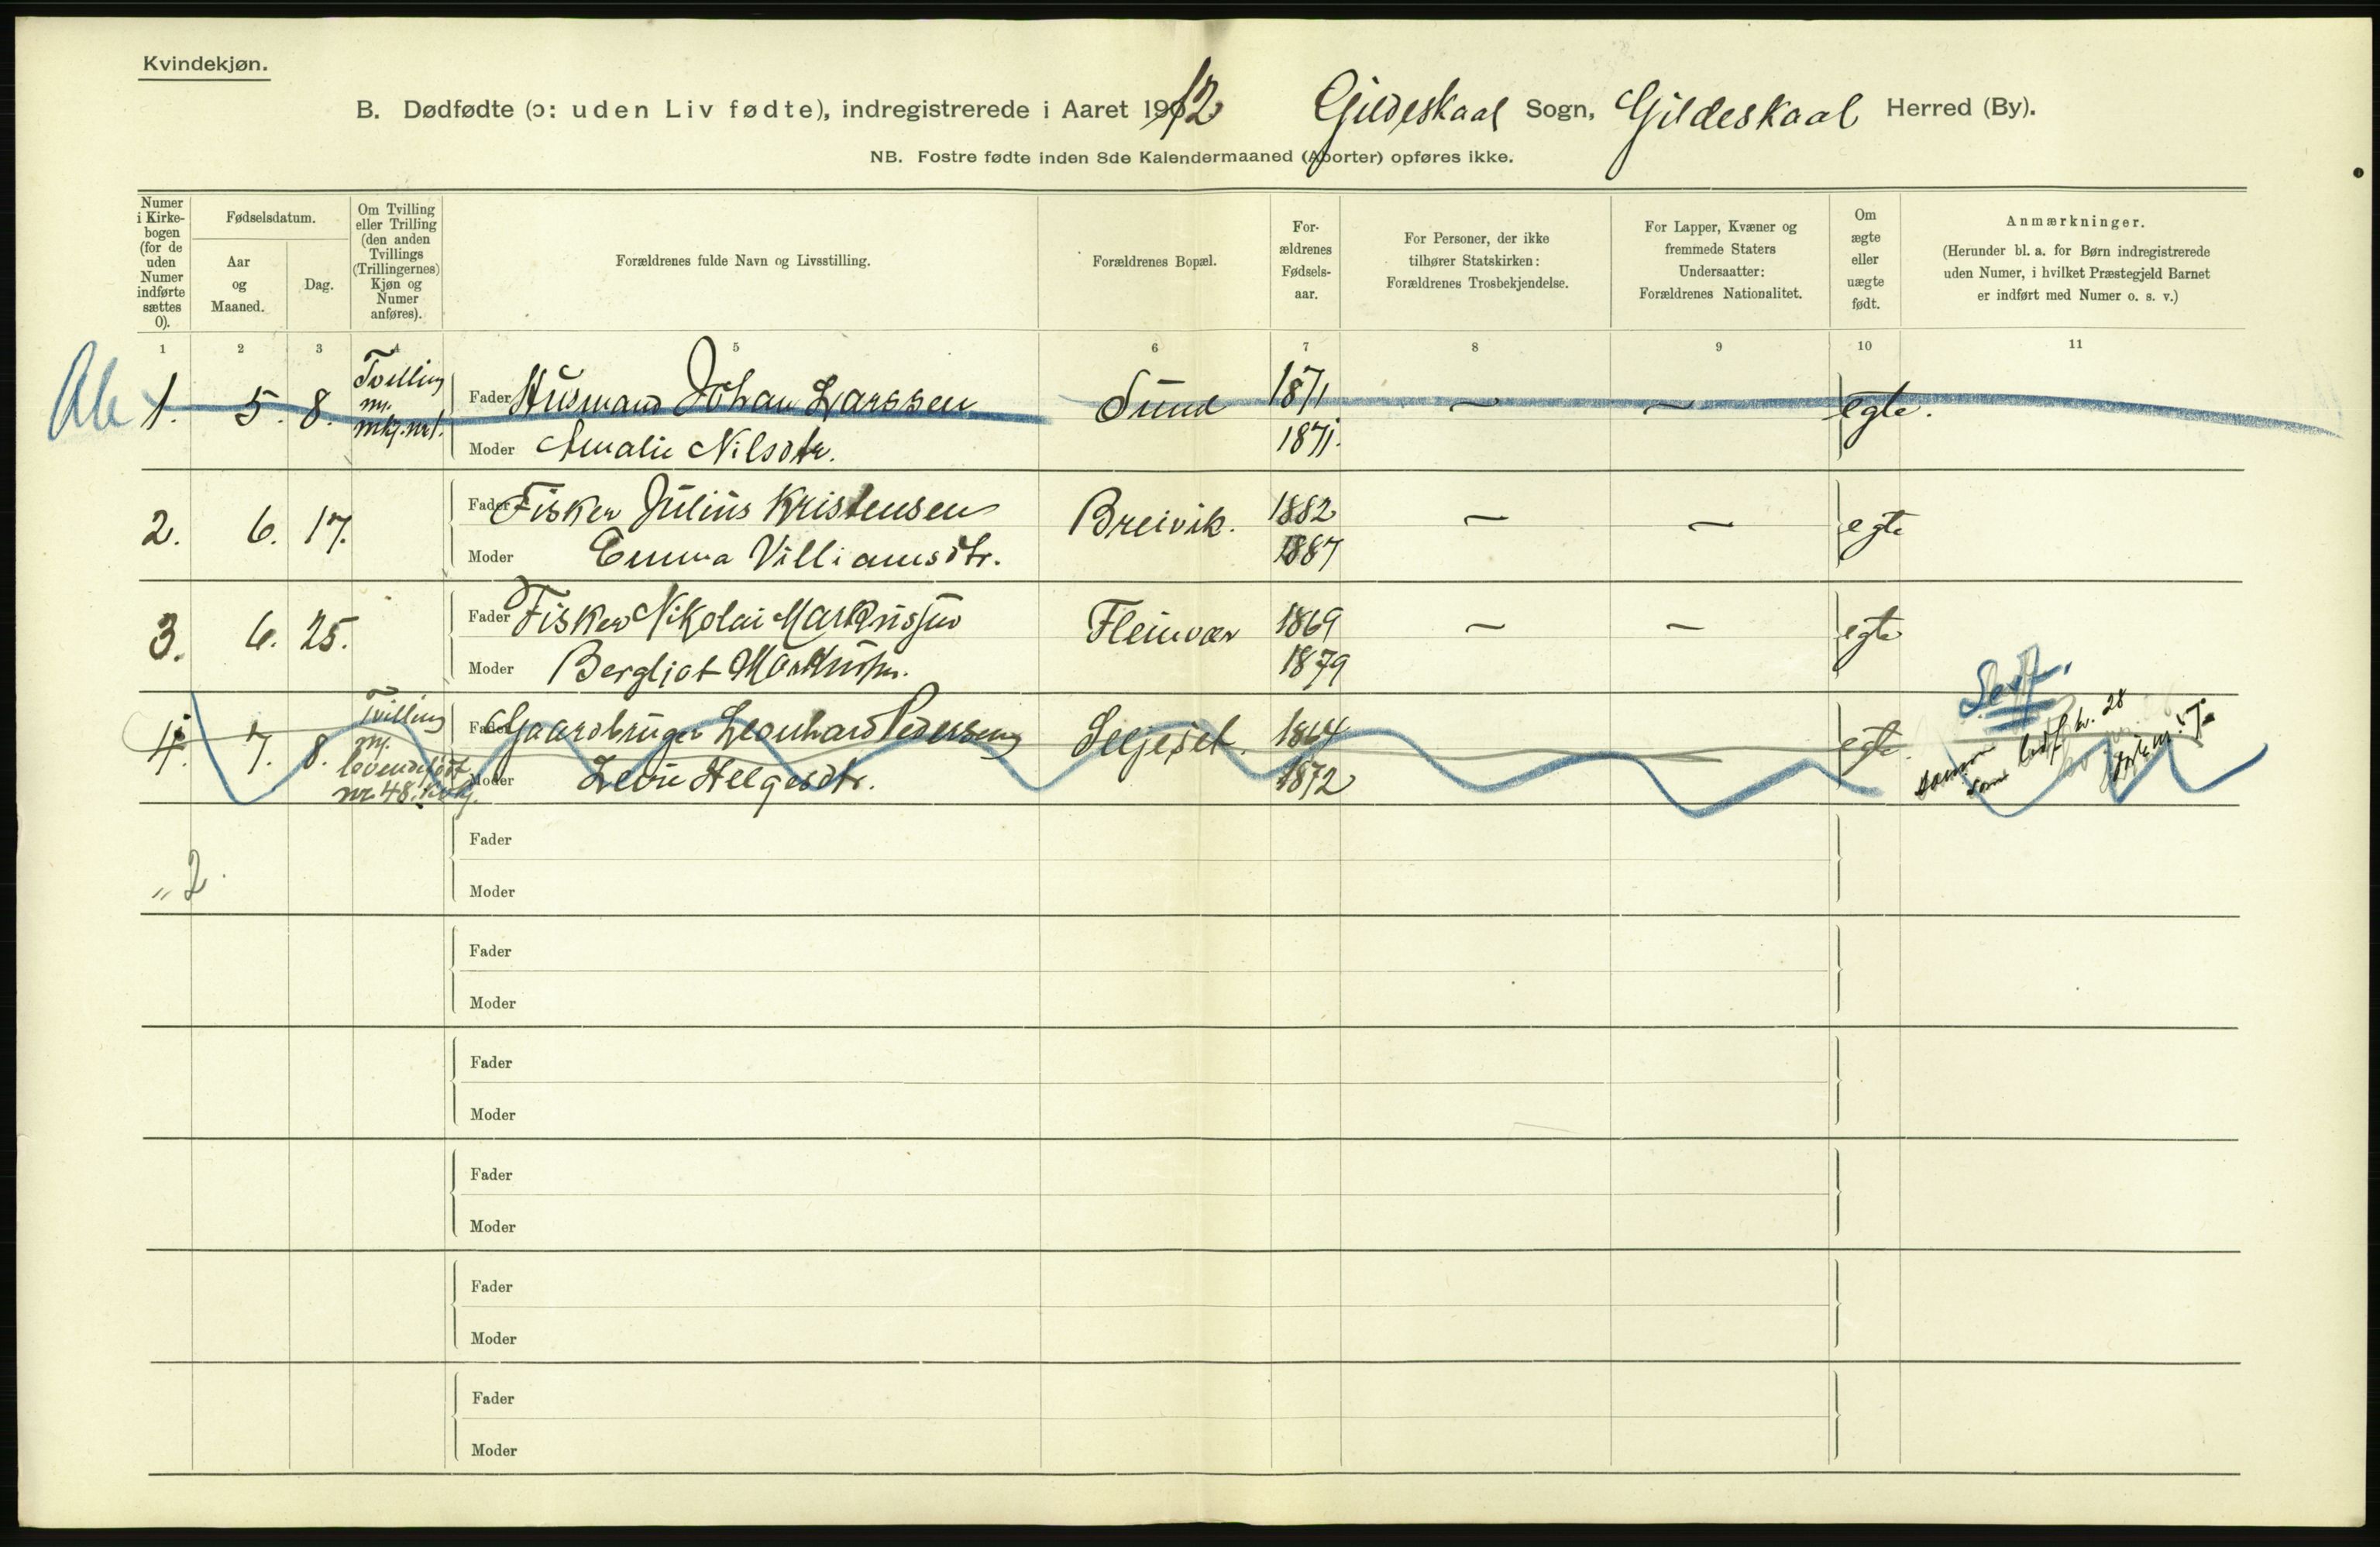 Kvindekjøn.
B. Dødfødte (ɔ: uden Liv fødte), indregistrerede i Aaret 1912 Gildeskaal Sogn, Gildeskaal Herred (By).
NB. Fostre fødte inden 8de Kalendermaaned (Aborter) opføres ikke.
Numer i Kirke-bogen (for de uden Numer indførte sættes 0).
Fødselsdatum.
Aar og Maaned.
Dag.
Om Tvilling eller Trilling (den anden Tvillings (Trillingernes) Kjøn og Numer anføres).
Forældrenes fulde Navn og Livsstilling.
Forældrenes Bopæl.
For-ældrenes Fødsels-aar.
For Personer, der ikke tilhører Statskirken: Forældrenes Trosbekjendelse.
For Lapper, Kvæner og fremmede Staters Undersaatter: Forældrenes Nationalitet.
Om ægte eller uægte født.
Anmærkninger.
(Herunder bl. a. for Børn indregistrerede uden Numer, i hvilket Præstegjeld Barnet er indført med Numer o. s. v.)
1 2 3 4 5 6 7 8 9 10 11
1. 5. 8. Tvilling m. mkj. nr 1. Fader Husmand Johan Larssen Sund 1871 — — egte.
Moder Amalie Nilsdtr. 1871.
2. 6. 17. Fader Fisker Julius Kristensen Breivik. 1882 — — egte
Moder Emma Villiamsdtr. 1887
3. 6. 25. Fader Fisker Nikolai Markussen Fleinvær 1869 — — egte
Moder Bergliot Markusdtr. 1879
4. 7. 8. Tvilling m. levendefødt nr. 48. kvkj. Fader Gaardbruger Leonhard Pedersen Seljeset. 1864 egte.
Moder Helgesdtr. 1872
samme som nr. 28
„ 2
Fader
Moder
Fader
Moder
Fader
Moder
Fader
Moder
Fader
Moder
Fader
Moder